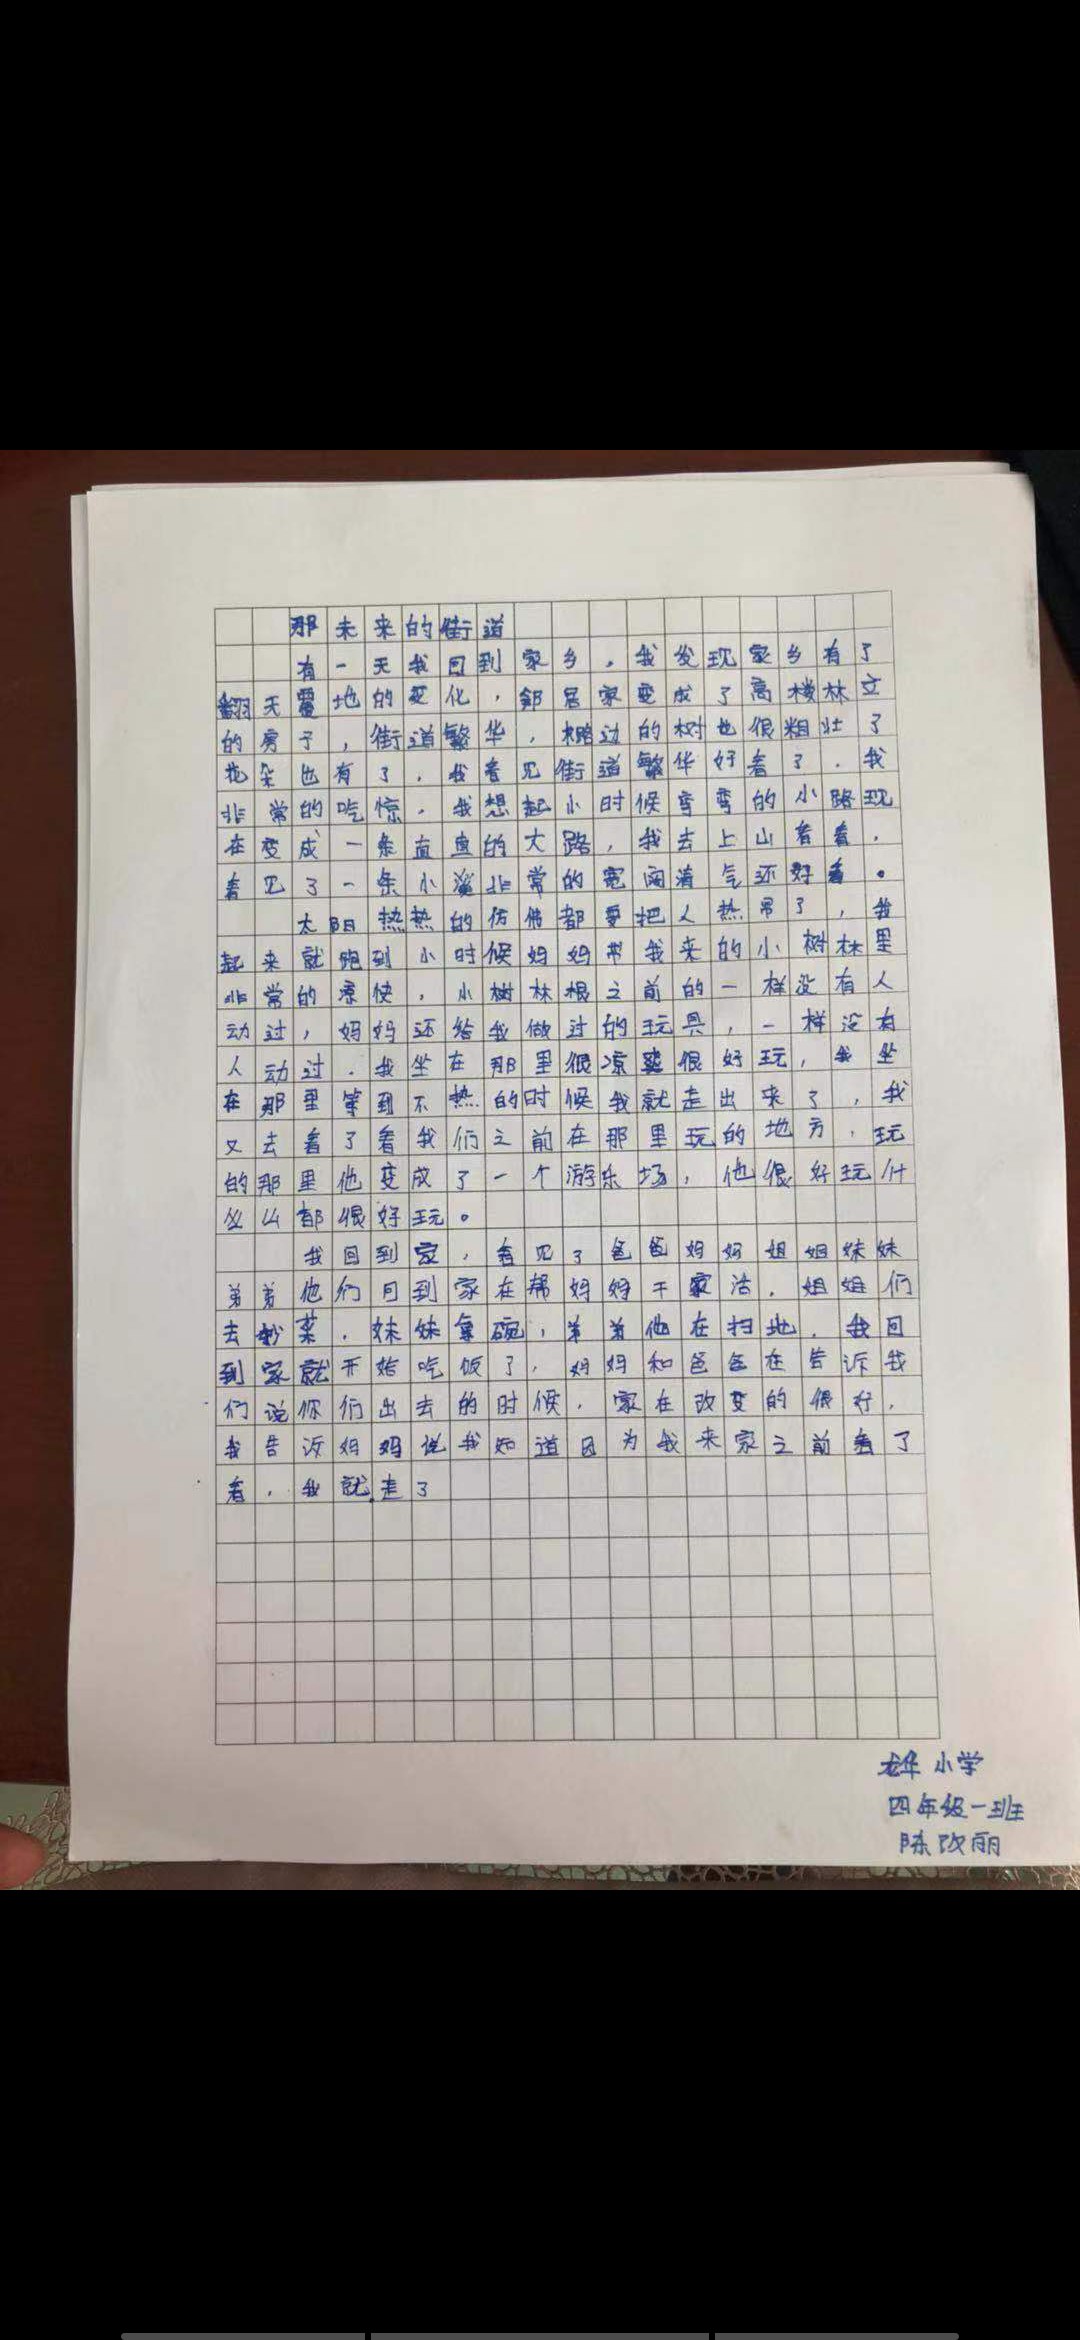 那未来的街道
有一天我回到家乡，我发现家乡有了
翻天覆地的变化，邻居家变成了高楼林立
的房子，街道繁华，路边的树也很粗壮了
花朵也有了，我看见街道繁华好看了．我
非常的吃惊．我想起小时候弯弯的小路现
在变成一条直直的大路，我去上山看看．
看见了一条小溪非常的宽阔清气还好看。
太阳热热的仿佛都要把人热吊了，我
起来就跑到小时候妈妈带我来的小树林里
非常的凉快，小树林根之前的一样没有人
动过，妈妈还给我做过的玩具，一样没有
人动过．我坐在那里很凉爽很好玩，我坐
在那里等到不热的时候我就走出来了，我
又去看了看我们之前在那里玩的地方，玩
的那里他变成了一个游乐场，他很好玩什
么都很好玩。
我回到家，看见了爸爸妈妈姐姐妹妹
弟弟他们回到家在帮妈妈干家活．姐姐们
去炒菜．妹妹拿碗，弟弟他在扫地．我回
到家就开始吃饭了，妈妈和爸爸在告诉我
们说你们出去的时候．家在改变的很好．
我告诉妈妈说我知道因为我来家之前看了
看．我就走了
龙华小学
四年级一班
陈改丽